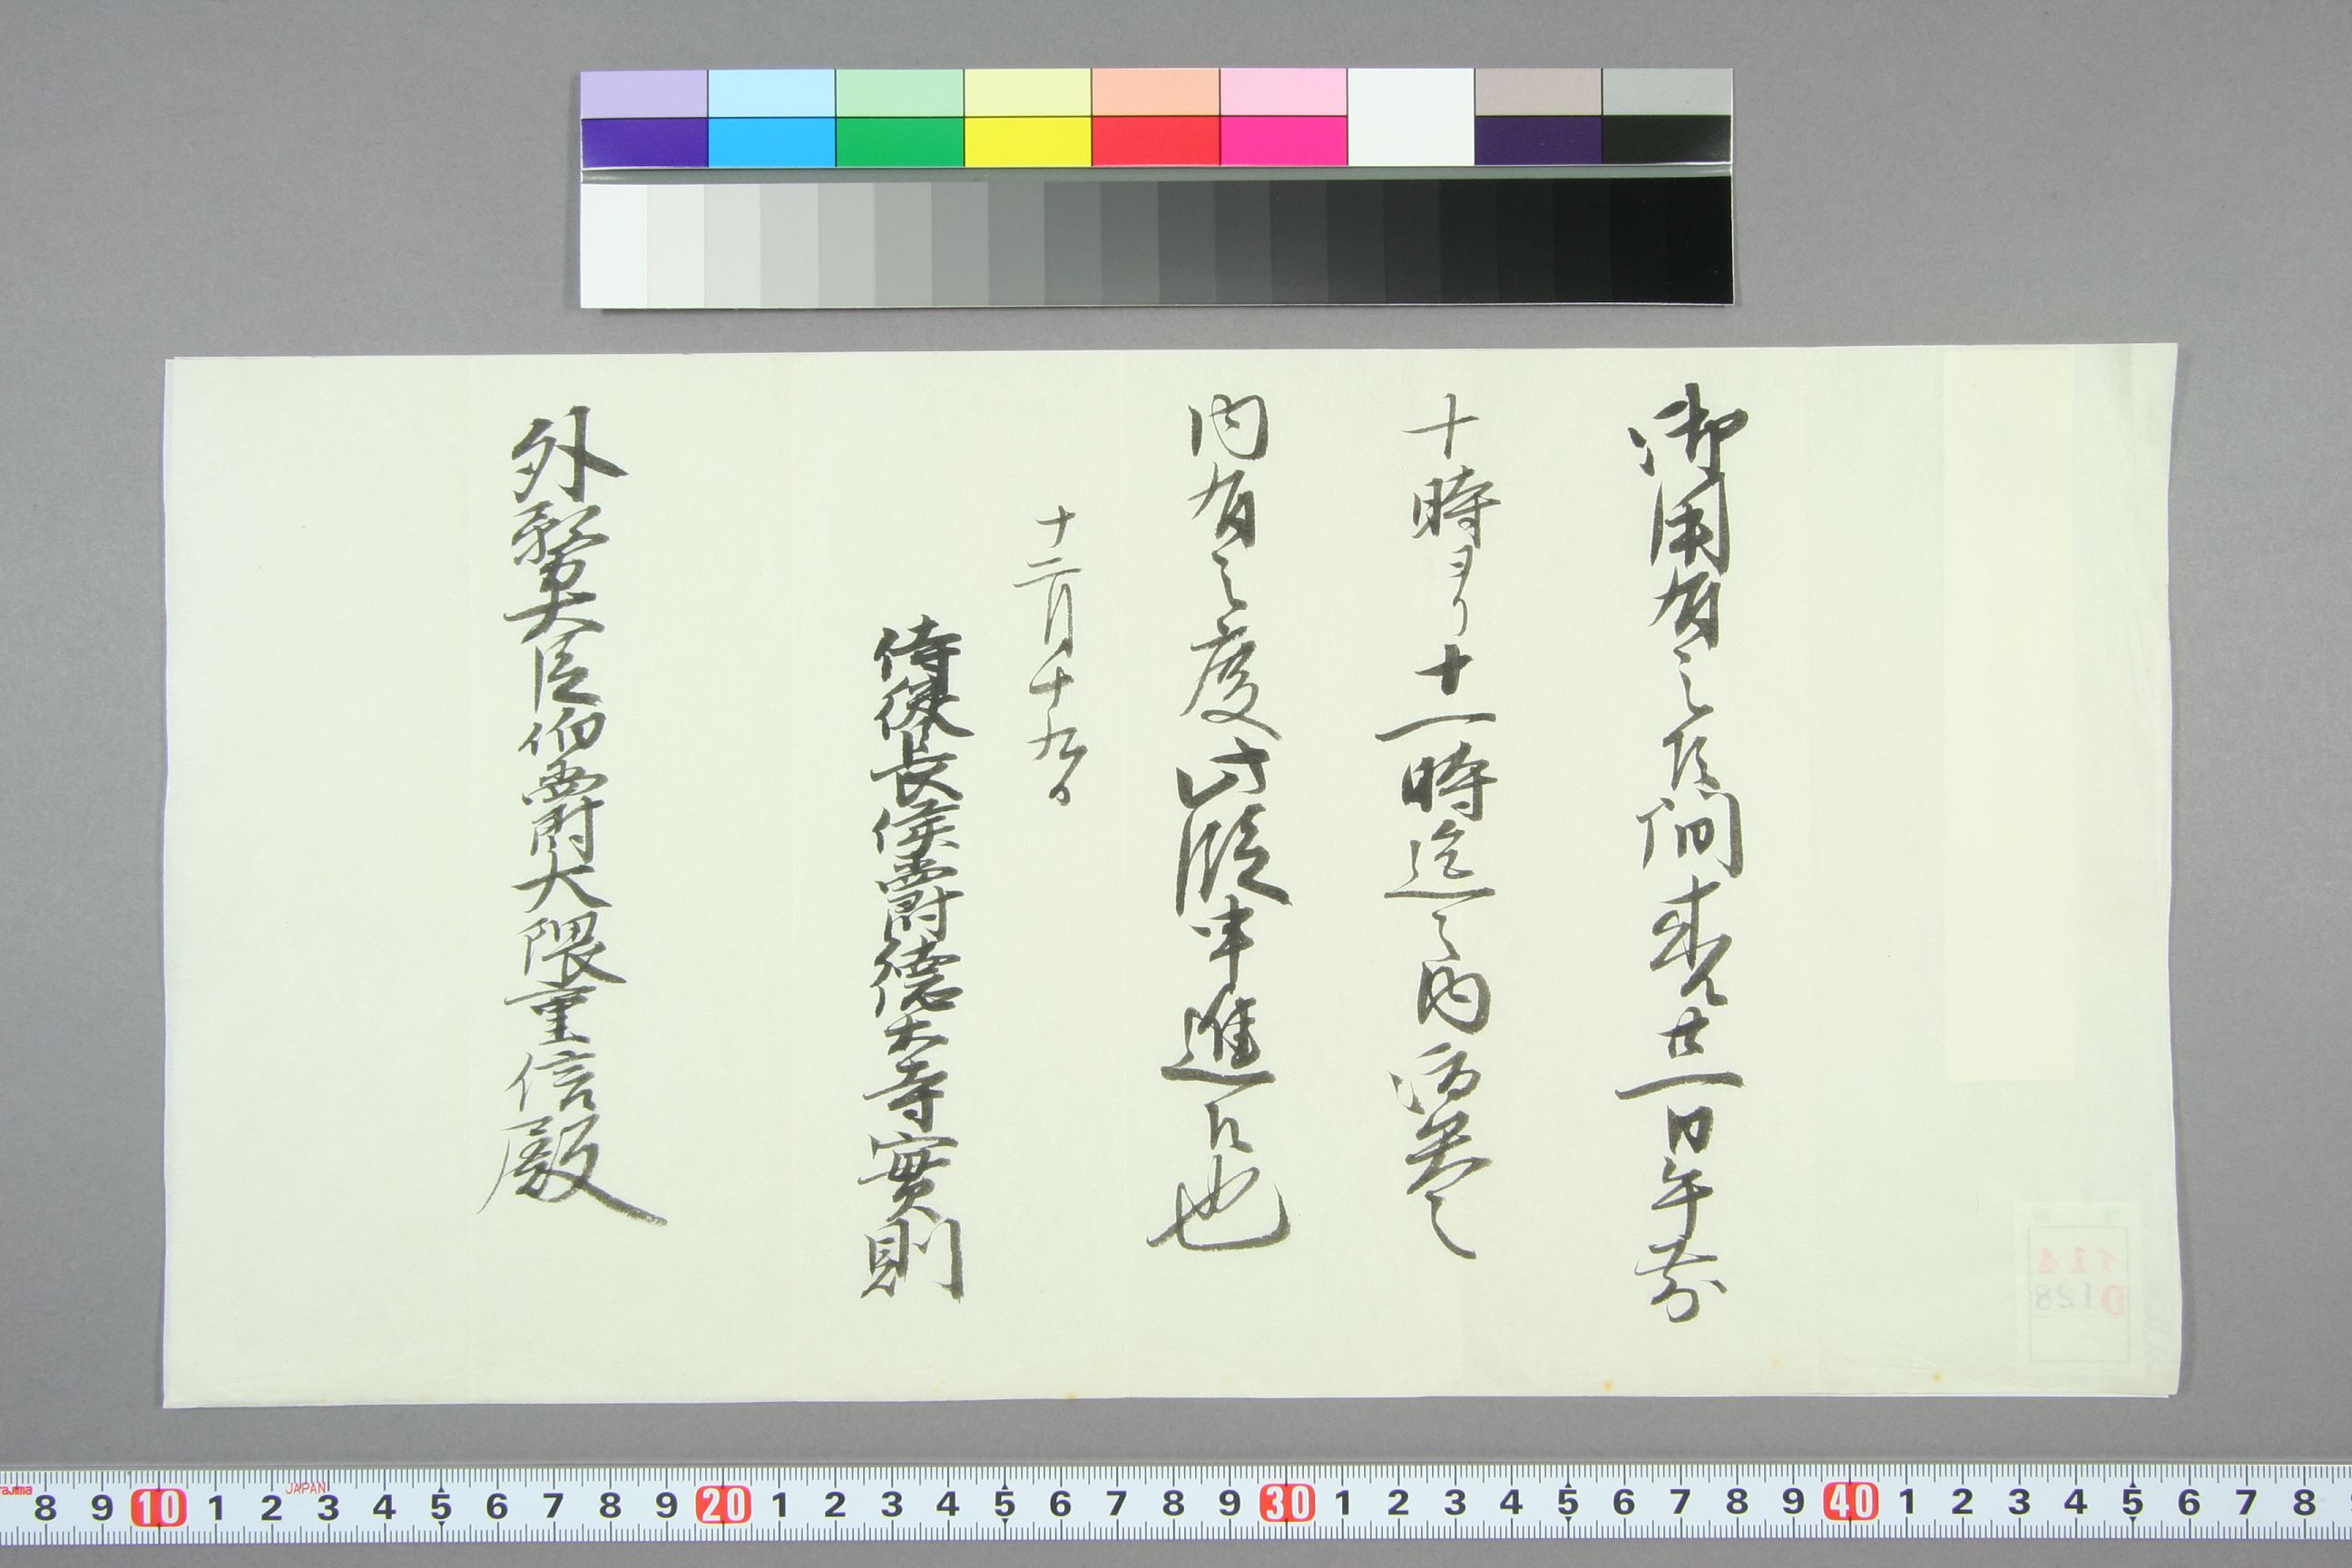 御用有之候間来ル廿一日午前
十時ヨリ十一時迄之内御参
内有之度此段申進候也
十二月十九日
侍従長侯爵徳大寺實則
外務大臣伯爵大隈重信殿
114
D128
JAPAN
8 9 10 1 2 3 4 5 6 7 8 9 20 1 2 3 4 5 6 7 8 9 30 1 2 3 4 5 6 7 8 9 40 1 2 3 4 5 6 7 8